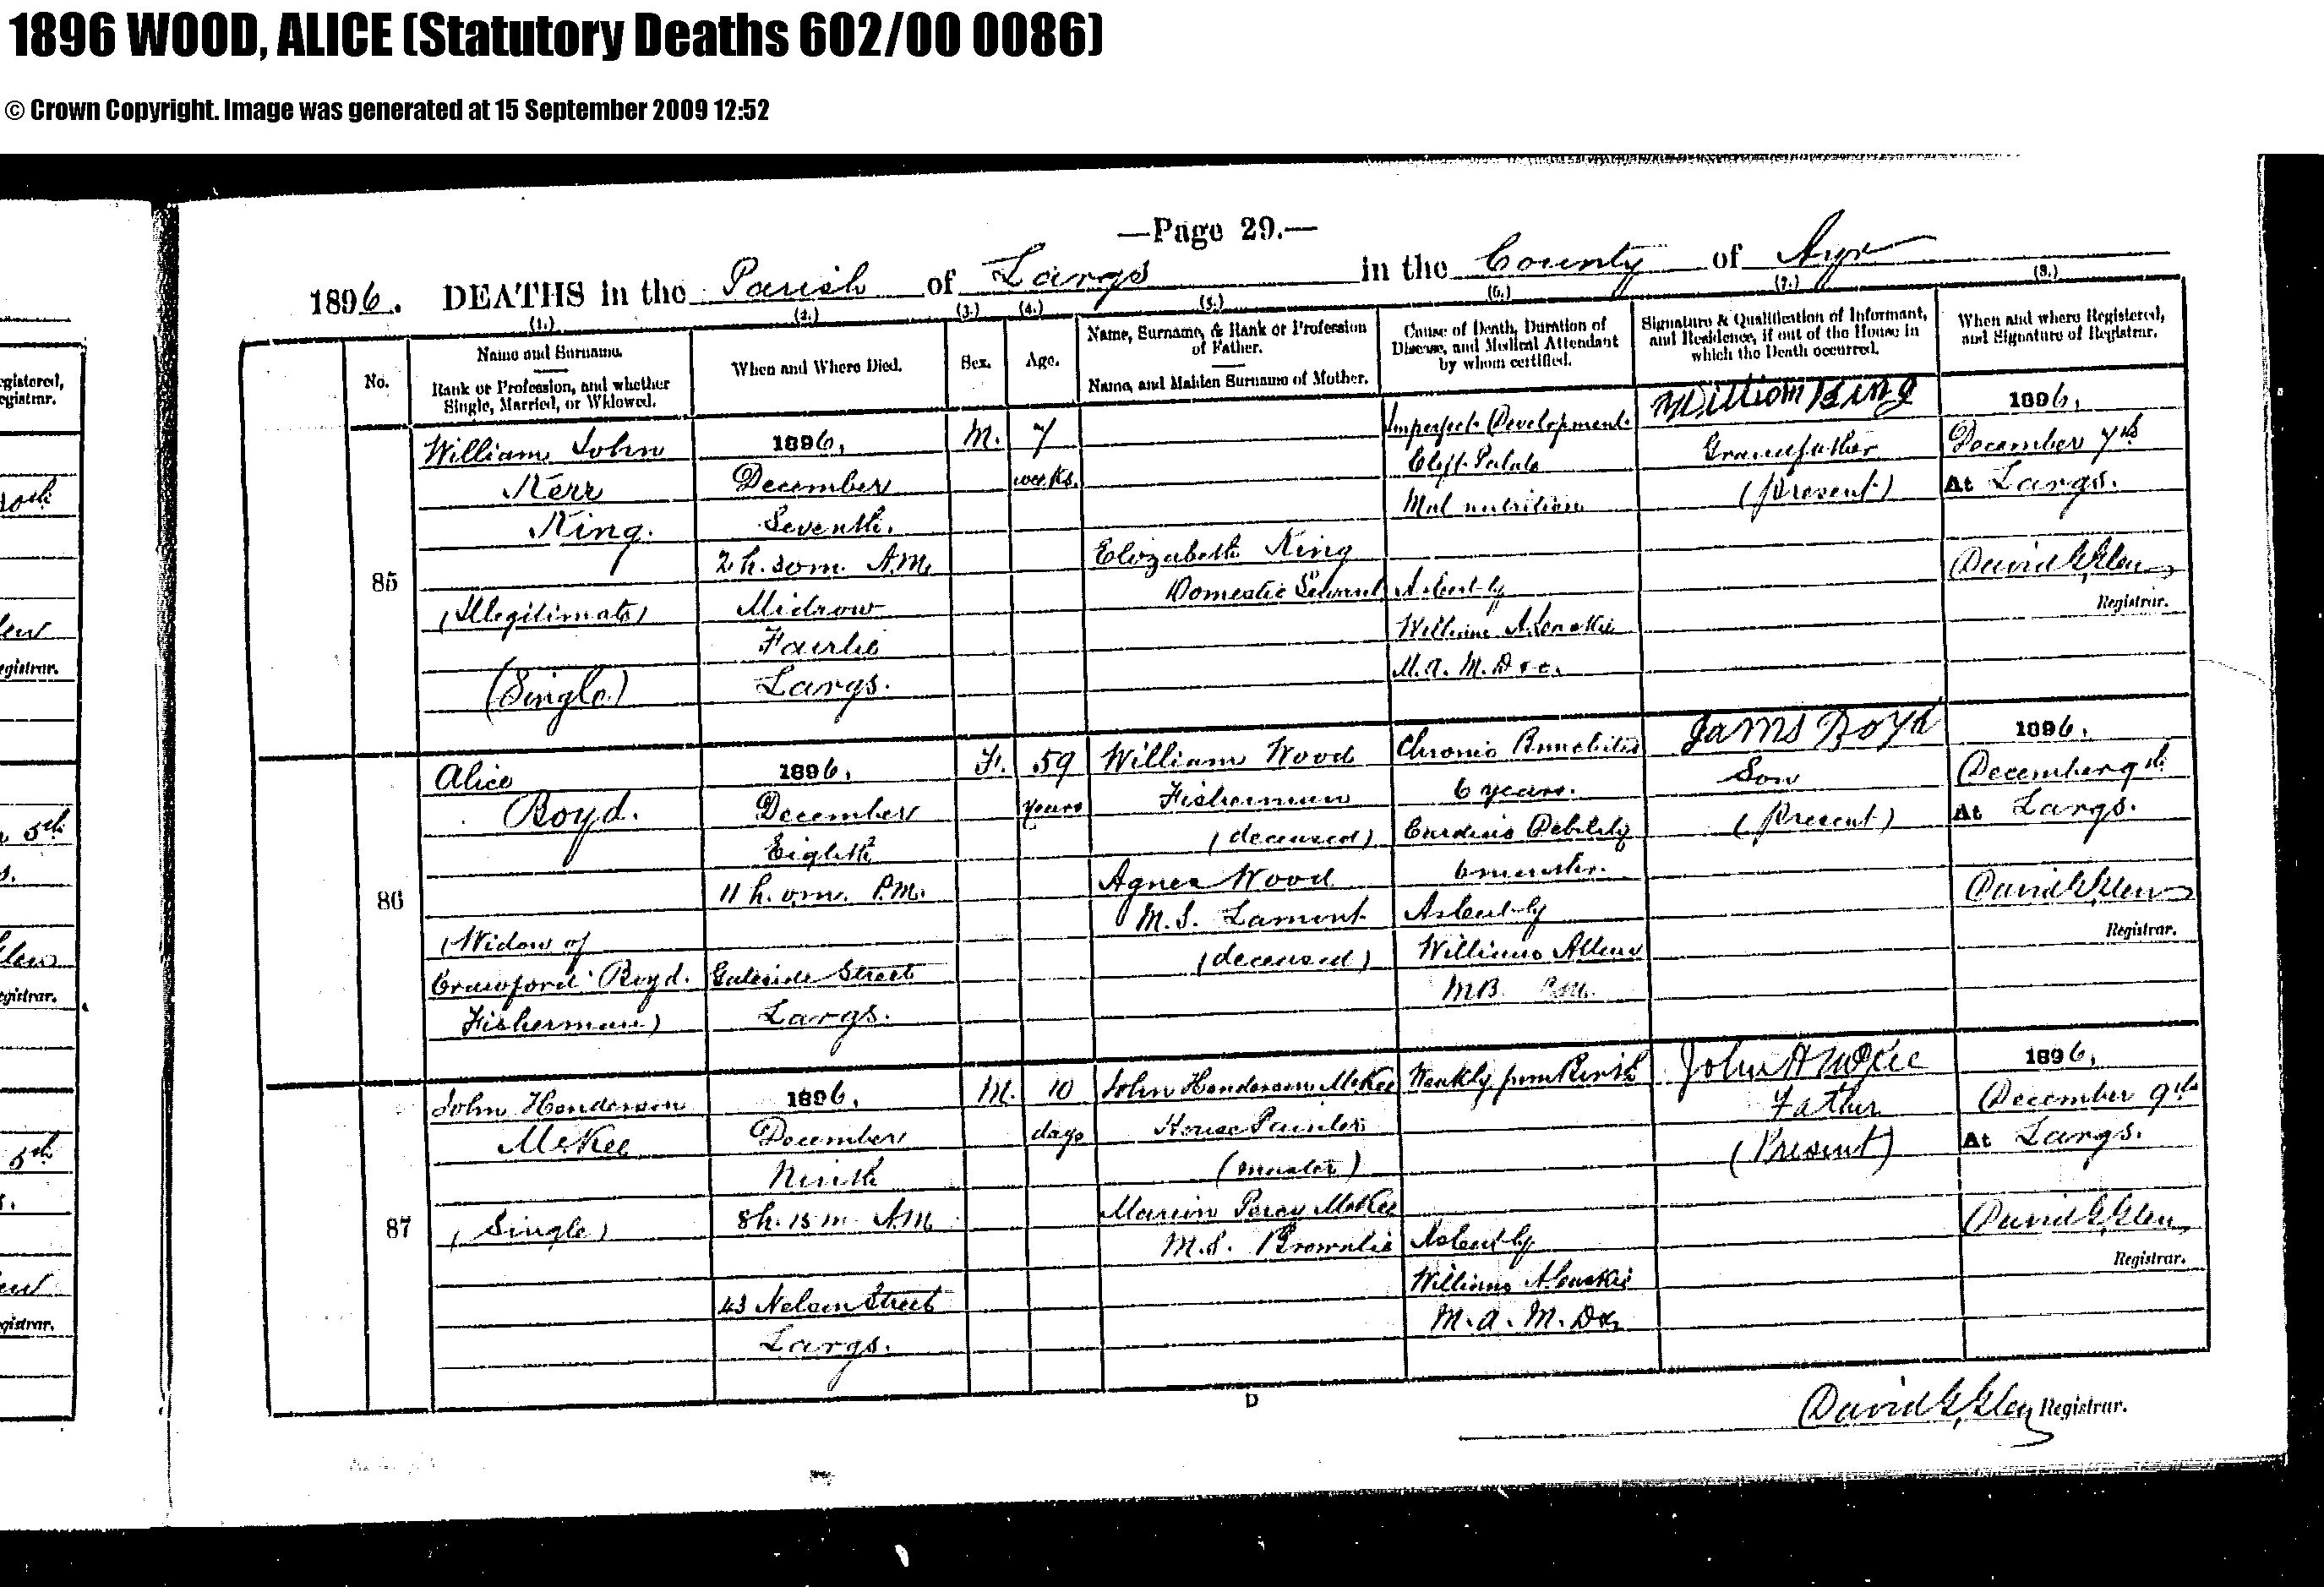 1896 WOOD, ALICE (Statutory Deaths 602/00 0086)
© Crown Copyright. Image was generated at 15 September 2009 12:52
—Page 29.—
1896. DEATHS in the Parish of Largs in the County of Ayr
(1.) (2.) (3.) (4.) (5.) (6.) (7.) (8.)
No.
Name and Surname.
Rank or Profession, and whether
Single, Married, or Widowed.
When and Where Died.
Sex.
Age.
Name, Surname, & Rank or Profession
of Father.
Name, and Maiden Surname of Mother.
Cause of Death, Duration of
Disease, and Medical Attendant
by whom certified.
Signature & Qualification of Informant,
and Residence, if out of the House in
which the Death occurred.
When and where Registered,
and Signature of Registrar.
85
William John
Kerr
King.
(Illegitimate)
(Single)
1896,
December
Seventh.
2 h. 30 m. A.M.
Midrow
Fairlie
Largs.
M.
7
weeks.
Elizabeth King
Domestic Servant
Imperfect Development
Cleft Palate
Mal nutrition
As cert by
William
M.A. M.D &c.
William King
Grandfather
(Present)
1896,
December 7th
At Largs.
David G. Glen
Registrar.
86
Alice
Boyd.
(Widow of
Crawford Boyd.
Fisherman)
1896,
December
Eighth
11 h. 0 m. P.M.
Gateside Street
Largs.
F.
59
years
William Wood
Fisherman
(deceased)
Agnes Wood
M.S. Lamont
(deceased)
Chronic Bronchitis
6 years.
Cardiac Debility
6 months.
As cert by
William Allan
M.B. C.M.
James Boyd
Son
(Present)
1896,
December 9th
At Largs.
David G. Glen
Registrar.
87
John Henderson
McKee
(Single)
1896,
December
Ninth
8 h. 15 m. A.M.
43 Nelson Street
Largs.
M.
10
days
John Henderson McKee
House Painter
(master)
Marion Percy McKee
M.S. Brownlie
Weakly from Birth
As cert by
William
M.A. M.D &c.
John H McKee
Father
(Present)
1896,
December 9th
At Largs.
David G. Glen
Registrar.
D
David G. Glen Registrar.